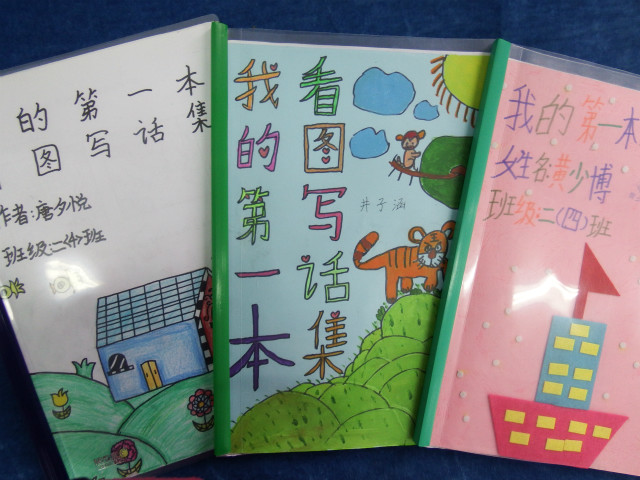 的第一本
图写话集
作者:唐夕悦
班级:二(4)班
我的第一本
看图写话集
井子涵
我的第一本
姓名:黄少博
班级:二(四)班